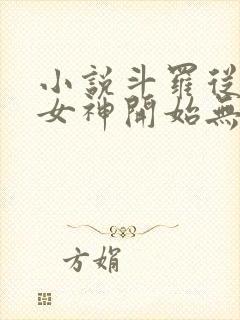 小說斗羅從
女神開始無
方娟